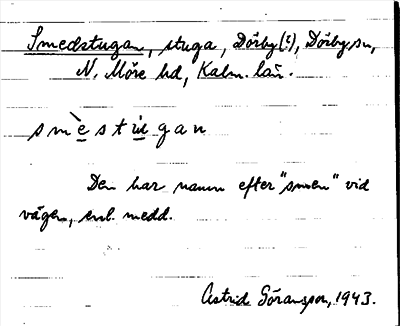 Smedstugan, stuga, Dörby(?), Dörby sn,
N. Möre hd, Kalm. län.
smèstu̲gan
Den har namn efter "smen" vid
vägen, enl. medd.
Astrid Göransson, 1943.